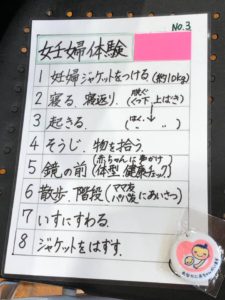 No.3
妊婦体験
1 妊婦ジャケットをつける(約10kg)
2 寝る、寝返り。(脱ぐ くつ下 上ばき)
3 起きる。(はく。〃 〃)
4 そうじ、物を拾う。
5 鏡の前(赤ちゃんに声かけ 体型、健康チェック)
6 散歩、階段(ママ友 パパ友にあいさつ)
7 いすにすわる。
8 ジャケットをはずす。
おなかに赤ちゃんがいます